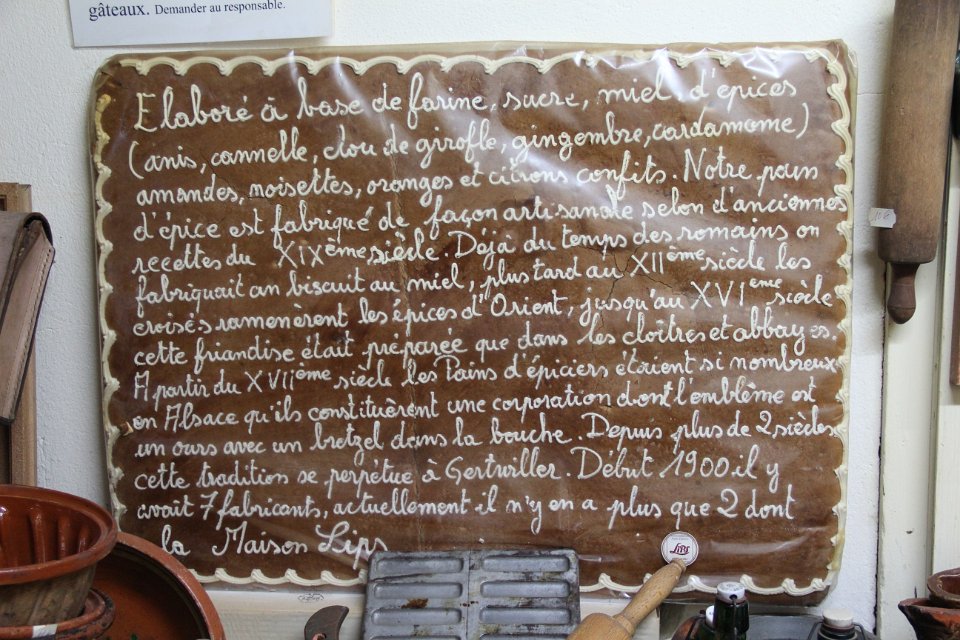 gâteaux. Demander au responsable.
Elaboré à base de farine, sucre, miel, d'épices
(anis, cannelle, clou de girofle, gingembre, cardamome)
amandes, noisettes, oranges et citrons confits. Notre pain
d'épice est fabriqué de façon artisanale selon d'anciennes
recettes du XIXème siècle. Déjà du temps des romains on
fabriquait un biscuit au miel, plus tard au XIIème siècle les
croisés ramenèrent les épices d'Orient, jusqu'au XVIème siècle
cette friandise était préparée que dans les cloîtres et abbayes.
A partir du XVIIème siècle les Pains d'épiciers étaient si nombreux
en Alsace qu'ils constituèrent une corporation dont l'emblème est
un ours avec un bretzel dans la bouche. Depuis plus de 2 siècles
cette tradition se perpétue à Gertwiller. Début 1900 il y
avait 7 fabricants, actuellement il n'y en a plus que 2 dont
la Maison Lips
LIPS